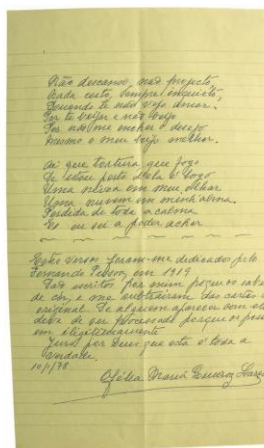 Não descanso, não projecto,
Nada certo, sempre inquieto,
Quando te não vejo, amor.
Por te beijar e não beijo
Por não me encher o desejo
Mesmo o meu beijo melhor.
Ai que tortura, que fogo
Se estou perto d'ela é logo
Uma névoa em meu olhar
Uma nuvem em minh'alma
Perdida de toda a calma
E eu sei a poder achar
Estes versos foram-me dedicados pelo
Fernando Pessoa, em 1919
São escritos por mim porque os sabia
de cór, e me das cartas o
original. Se alguem aparecer com eles
deve ser processado porque os possue
ilegitimamente
Juro por Deus que esta é toda a
verdade.
Ofélia Maria Queiroz Soares